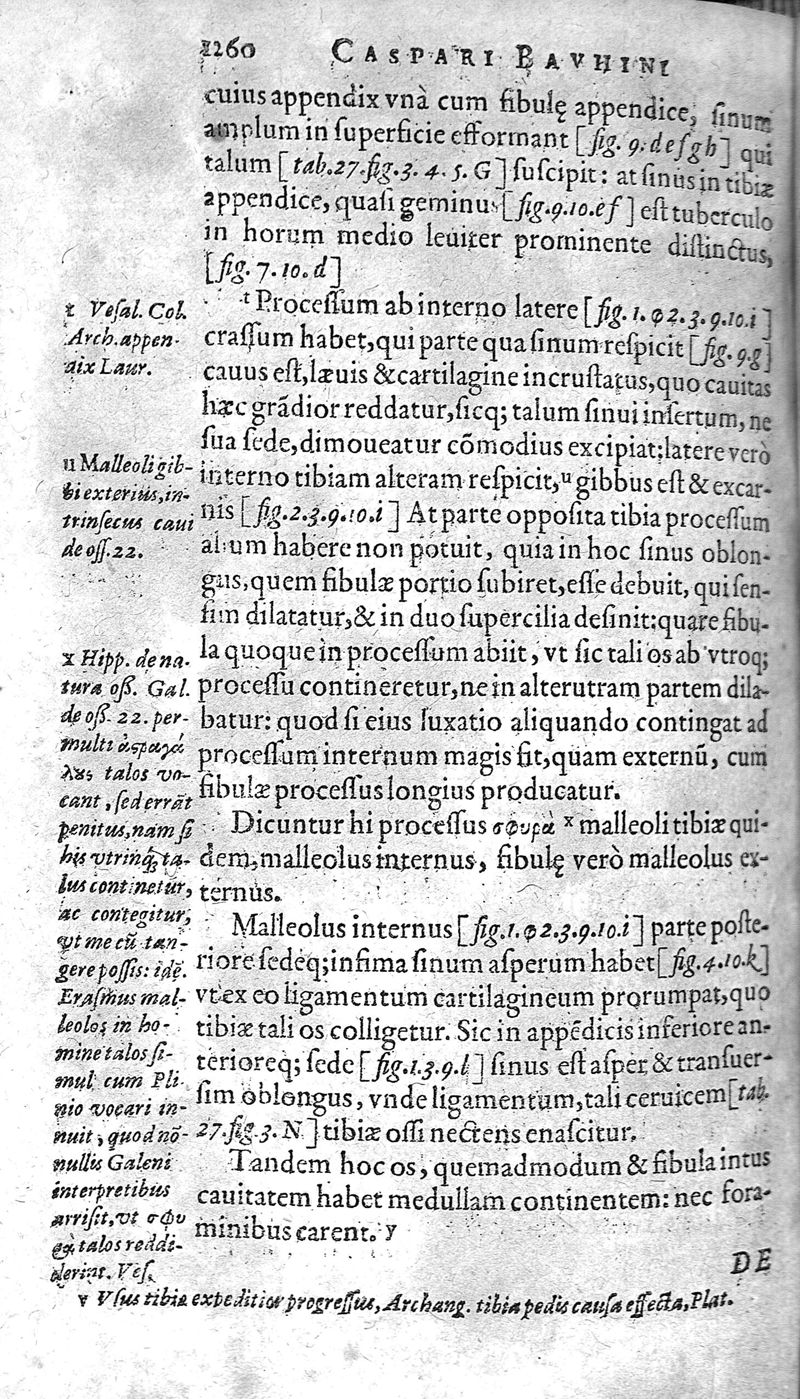 1260 CASPARI BAVHINI
cuius appendix vnà cum fibulę appendice, ſinum
amplum in ſuperficie efformant [fig. 9. deſgh] qui
talum [tab.27.fig.3. 4. 5. G] ſuſcipit: at ſinus in tibiæ
appendice, quaſi geminus [fig.9.10.ef] eſt tuberculo
in horum medio leuiter prominente diſtinctus,
[fig. 7.10.d]
ᵗ Proceſſum ab interno latere [fig. 1. φ 2.3.9.10.i]
craſſum habet, qui parte qua ſinum reſpicit [fig.9.g]
cauus eſt, læuis & cartilagine incruſtatus, quo cauitas
hæc grãdior reddatur, ſicq; talum ſinui inſertum, ne
ſua ſede, dimoueatur cõmodius excipiat: latere verò
interno tibiam alteram reſpicit, ᵘ gibbus eſt & excar-
nis [fig.2.3.9.10.i] At parte oppoſita tibia proceſſum
alium habere non potuit, quia in hoc ſinus oblon-
gus, quem fibulæ portio ſubiret, eſſe debuit, qui ſen-
ſim dilatatur, & in duo ſupercilia deſinit: quare fibu-
la quoque in proceſſum abiit, vt ſic tali os ab vtroq;
proceſſu contineretur, ne in alterutram partem dila-
batur: quod ſi eius luxatio aliquando contingat ad
proceſſum internum magis fit, quam externũ, cum
fibulæ proceſſus longius producatur.
Dicuntur hi proceſſus σφυρὰ ˣ malleoli tibiæ qui-
dem, malleolus internus, fibulę verò malleolus ex-
ternus.
Malleolus internus [fig.1.φ2.3.9.10.i] parte poſte-
riore ſedeq; infima ſinum aſperum habet [fig.4.10.k]
vt ex eo ligamentum cartilagineum prorumpat, quo
tibiæ tali os colligetur. Sic in appẽdicis inferiore an-
terioreq; ſede [fig.1.3.9.l] ſinus eſt aſper & tranſuer-
ſim oblongus, vnde ligamentum, tali ceruicem [tab.
27.fig.3. N] tibiæ oſſi nectens enaſcitur.
Tandem hoc os, quemadmodum & fibula intus
cauitatem habet medullam continentem: nec fora-
minibus carent. y
DE
t Veſal. Col.
Arch. appen-
dix Laur.
u Malleoli gib-
bi exterius, in-
trinſecus caui
de oſſ. 22.
x Hipp. de na-
tura oſſ. Gal.
de oſſ. 22. per-
multi ἀσραγά
λους talos vo-
cant, ſed errãt
penitus, nam ſi
his vtrinq; ta-
lus continetur,
ac contegitur,
vt me cũ tan-
gere poſſis: idẽ.
Eraſmus mal-
leolos in ho-
mine talos ſi-
mul cum Pli-
nio vocari in-
nuit, quod nõ-
nullis Galeni
interpretibus
arriſit, vt σφυ
ρὰ talos reddi-
derint. Veſ.
y Vſus tibiæ expeditior progreſſus, Archang. tibia pedis cauſa effecta, Plat.